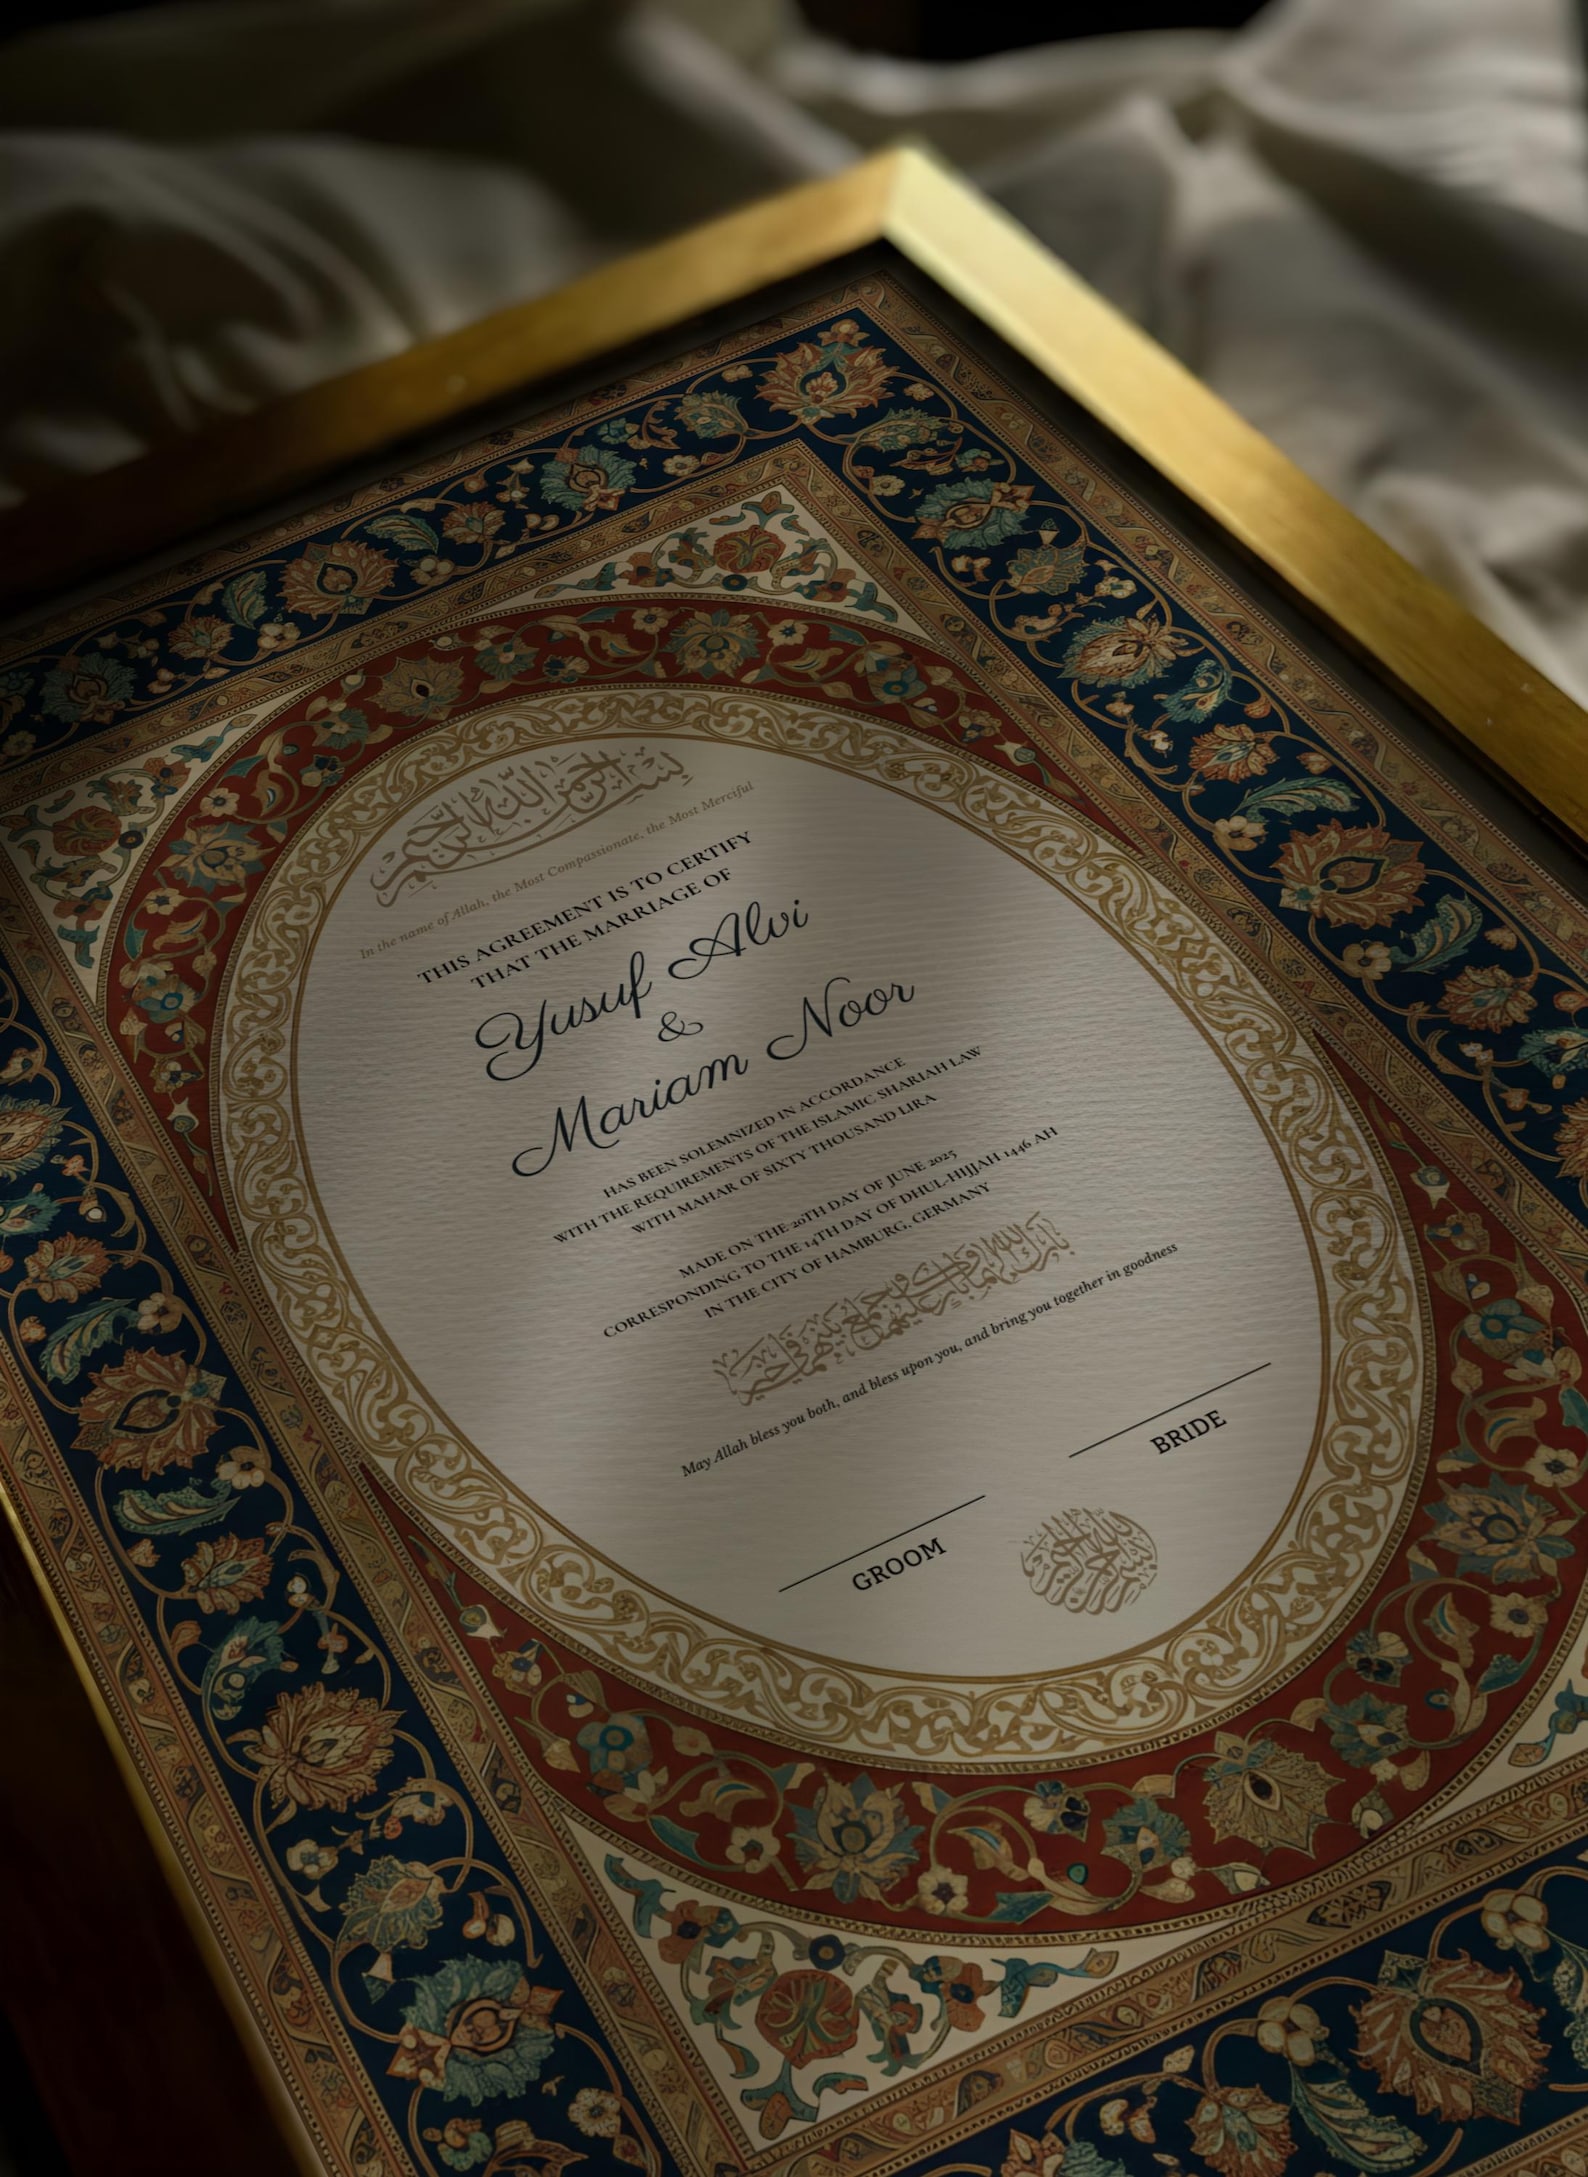 بسم الله الرحمن الرحيم
In the name of Allah, the Most Compassionate, the Most Merciful
THIS AGREEMENT IS TO CERTIFY
THAT THE MARRIAGE OF
Yusuf Alvi
&
Mariam Noor
HAS BEEN SOLEMNIZED IN ACCORDANCE
WITH THE REQUIREMENTS OF THE ISLAMIC SHARIAH LAW
WITH MAHAR OF SIXTY THOUSAND LIRA
MADE ON THE 20TH DAY OF JUNE 2025
CORRESPONDING TO THE 14TH DAY OF DHUL-HIJJAH 1446 AH
IN THE CITY OF HAMBURG, GERMANY
بارك الله لكما وبارك عليكما وجمع بينكما في خير
May Allah bless you both, and bless upon you, and bring you together in goodness
BRIDE
GROOM
بسم الله الرحمن الرحيم